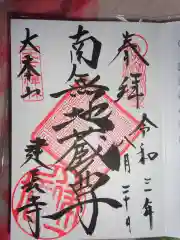 奉拝
令和三年
八月二十日
南無地蔵尊
大本山
建長寺